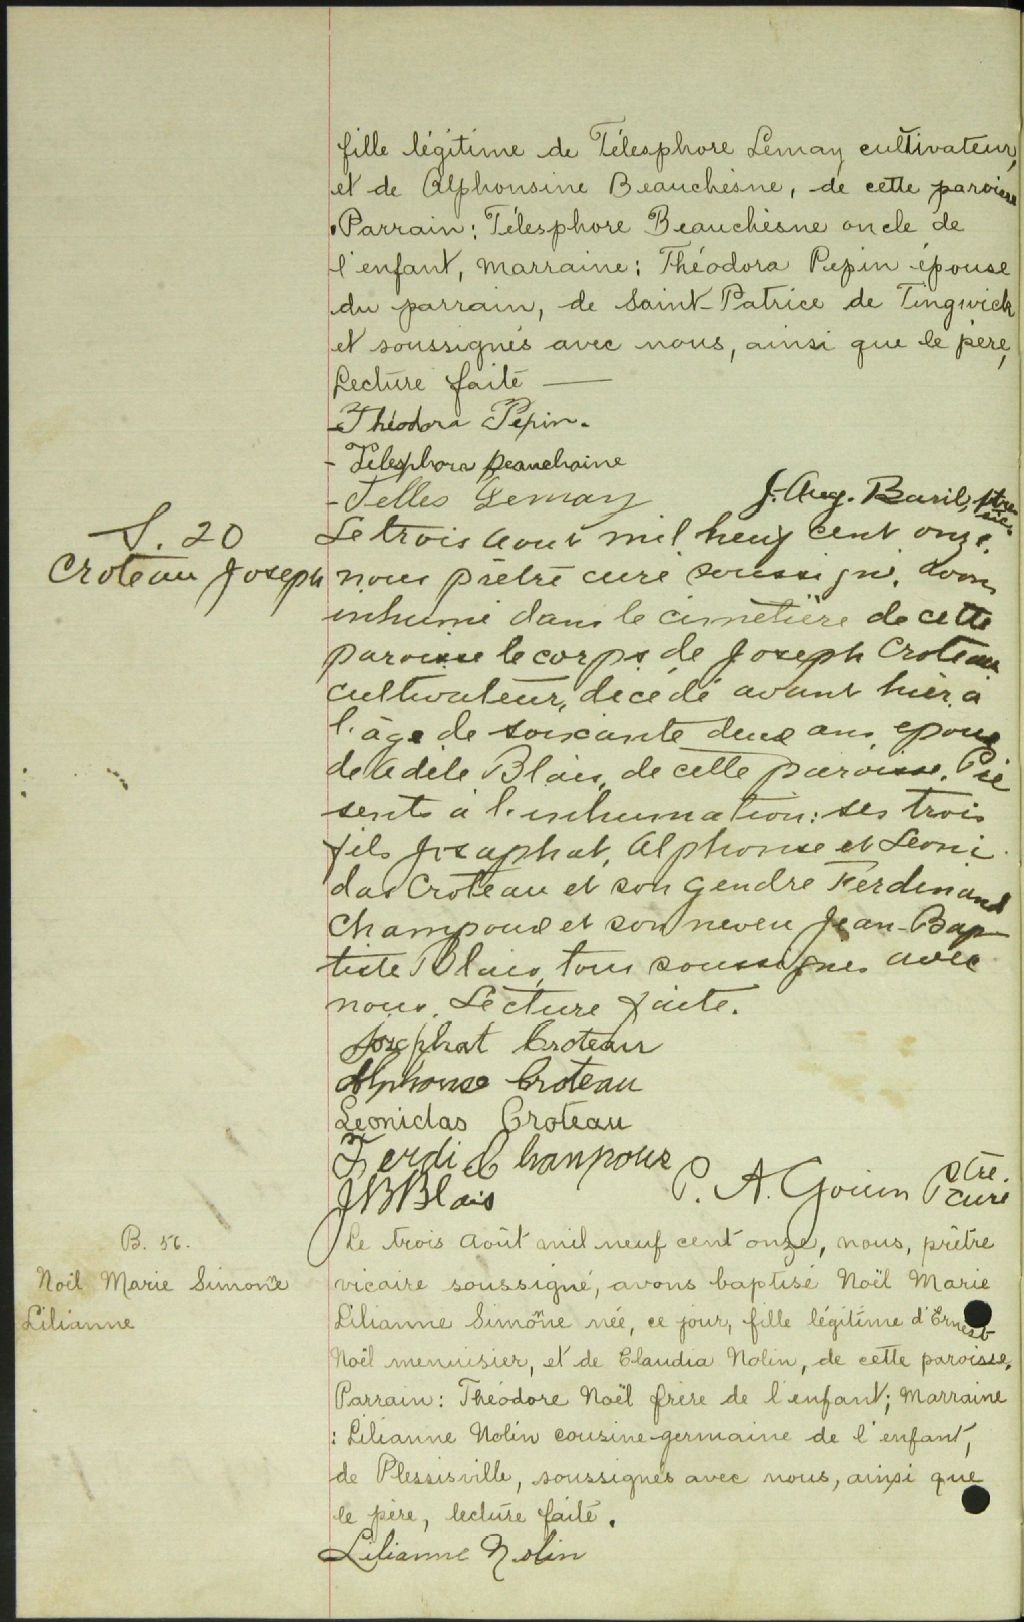 fille légitime de Télesphore Lemay cultivateur,
et de Alphonsine Beauchèsne, de cette paroisse
Parrain: Télesphore Beauchèsne oncle de
l'enfant, marraine: Théodora Pepin épouse
du parrain, de Saint-Patrice de Tingwick
et soussignés avec nous, ainsi que le père,
Lecture faite —
- Théodora Pepin.
- Telesphore Beauchaine
- Telles Lemay J. Aug. Baril, ptre
vic.
S. 20
Croteau Joseph
Le trois aout mil neuf cent onze,
nous prêtre curé soussigné, avons
inhumé dans le cimetière de cette
paroisse le corps de Joseph Croteau
cultivateur, décédé avant hier, à
l'âge de soixante deux ans, époux
de Adèle Blais, de cette paroisse. Pré
sents à l'inhumation: ses trois
fils Josaphat, Alphonse et Leoni
das Croteau et son gendre Ferdinand
Champoux et son neveu Jean-Bap
tiste Blais, tous soussignés avec
nous. Lecture faite.
Josaphat Croteau
Alphonse Croteau
Leonidas Croteau
Ferdi Champoux
J B Blais P. A. Gouin Ptre.
curé
B. 56.
Noël Marie Simone
Lilianne
Le trois août mil neuf cent onze, nous, prêtre
vicaire soussigné, avons baptisé Noël Marie
Lilianne Simone née, ce jour, fille légitime d'Ernest
Noël menuisier, et de Claudia Nolin, de cette paroisse,
Parrain: Théodore Noël frère de l'enfant; Marraine
: Lilianne Nolin cousine-germaine de l'enfant,
de Plessisville, soussignés avec nous, ainsi que
le père, lecture faite.
Lilianne Nolin